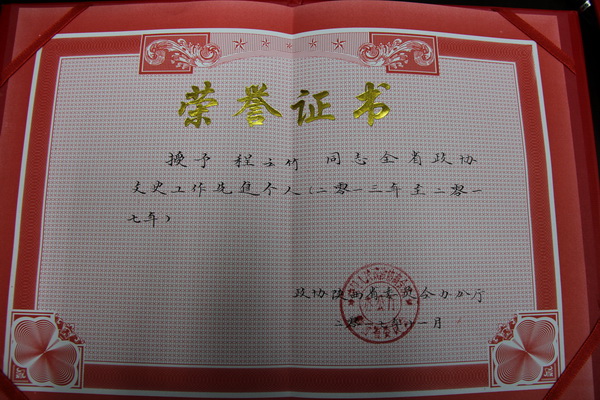 荣誉证书
授予 程云竹 同志全省政协
文史工作先进个人(二零一三年至二零一
七年)
政协陕西省委员会办公厅
二零一八年一月